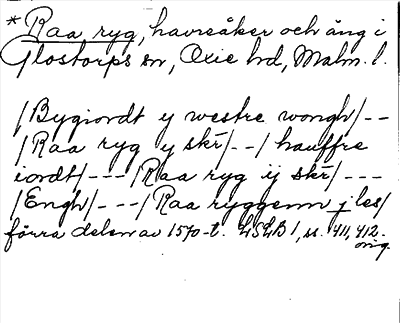 *Raa ryg, havreåker och äng i
Glostorps sn, Oxie hd, Malm. l.
/Bygiordt y westre wongh/--
/Raa ryg y skr̄/--/hauffre
iordt/---/Raa ryg ij skr̄/---
/Engh/---/Raa ryggenn j les/
förra delen av 1570-t. LSLB 1, ss. 411, 412.
orig.